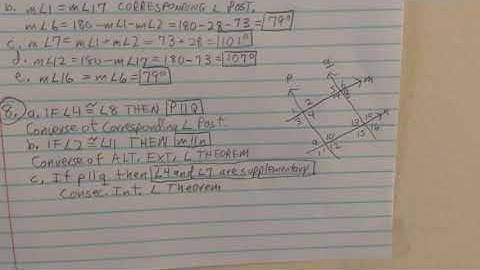 b. m∠1 = m∠17 CORRESPONDING ∠ POST.
m∠6 = 180 - m∠1 - m∠2 = 180 - 28 - 73 = 79°
c. m∠7 = m∠1 + m∠2 = 73 + 28 = 101°
d. m∠12 = 180 - m∠17 = 180 - 73 = 107°
e. m∠16 = m∠6 = 79°
8. a. IF ∠4 ≅ ∠8 THEN P||Q
Converse of Corresponding ∠ Post.
b. IF ∠2 ≅ ∠11 THEN m||n
Converse of ALT. EXT. ∠ THEOREM
c. If p||q then ∠4 and ∠7 are supplementary
Consec. Int. ∠ Theorem
P
m
2
3 4
9 10
11 12
13 10
15 16